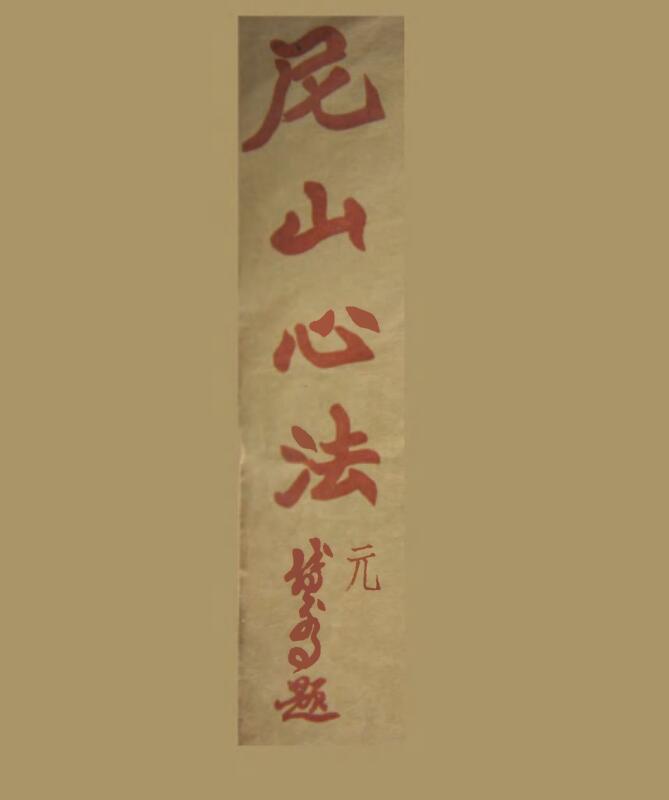 尼山心法
元
題